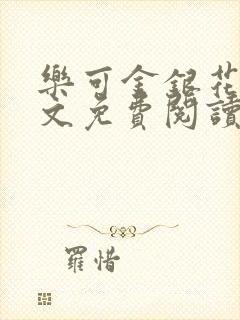 樂可金銀花
文免費閱讀
羅惜